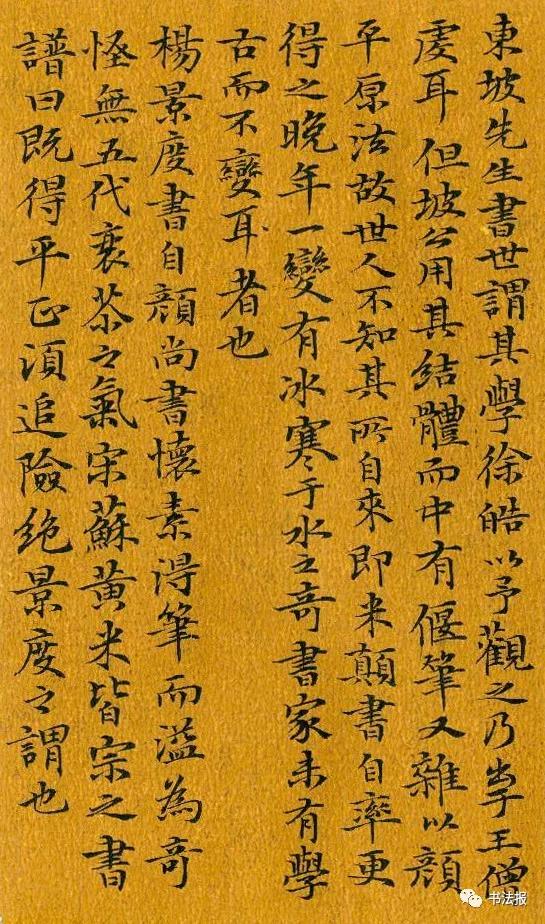 東坡先生書世謂其學徐皓以予觀之乃學王僧
虔耳但坡公用其結體而中有偃筆又雜以顔
平原法故世人不知其所自來即米顛書自率更
得之晚年一變有冰寒于水之奇書家未有學
古而不變耳者也
楊景度書自顔尚書懷素得筆而溢為奇
怪無五代衰苶之氣宋蘇黄米皆宗之書
譜曰既得平正須追險絶景度之謂也
书法报